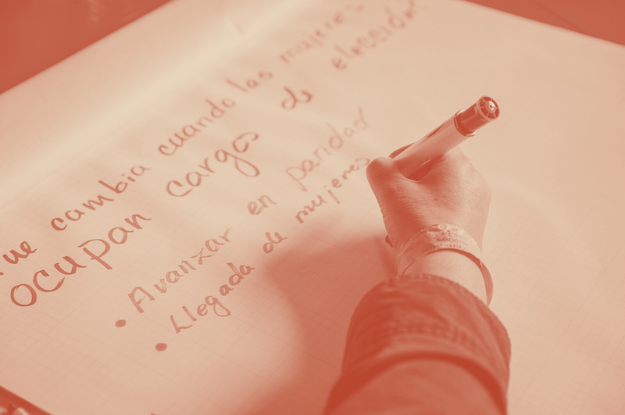 ue cambia cuando las mujeres
ocupan cargos de elección
• Avanzar en paridad
• Llegada de mujeres